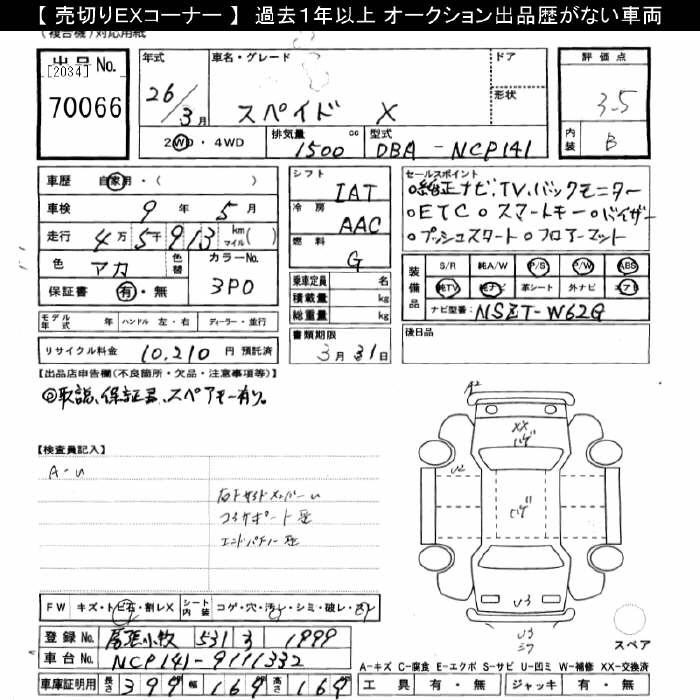 【 売切りEXコーナー 】 過去1年以上 オークション出品歴がない車両
(複合機)対応用紙
出品No.
[2034]
70066
年式
26/3月
車名・グレード
スペイド X
ドア
形状
評価点
3-5
内装
B
2WD・4WD
排気量
1500 cc
型式
DBA-NCP141
車歴 自家用・( )
車検 9年 5月
走行 4万5千913 km マイル( )
色 アカ
色替
カラーNo.
3P0
保証書 有・無
シフト
IAT
冷房
AAC
燃料
G
乗車定員 名
積載量 kg
総重量 kg
セールスポイント
○純正ナビ、TV、バックモニター
○ETC○スマートキー○バイザー
○プッシュスタート○フロアーマット
装備品
S/R 純A/W P/S P/W ABS
純TV 純ナビ 革シート 外ナビ エアB
ナビ型番 NSZT-W62G
モデル年式 年 ハンドル 左・右 ディーラー・並行
リサイクル料金 10,210 円 預託済
書類期限
3月31日
後日品
【出品店申告欄(不良箇所・欠品・注意事項等)】
◎取説、保証書、スペアキー有り。
【検査員記入】
A-U
コアサポート
エンドパネル
A2
XX
U2
U3
U3
FW キズ・トビ石・割レX
シート内装
コゲ・穴・汚レ・シミ・破レ・
登録No. 尾張小牧 531 3 1999
車台No. NCP141-9111332
車庫証明用 長さ 399 幅 169 高さ 169
スペア
A-キズ C-腐食 E-エクボ S-サビ U-凹ミ W-補修 XX-交換済
工具 有・無 ジャッキ 有・無